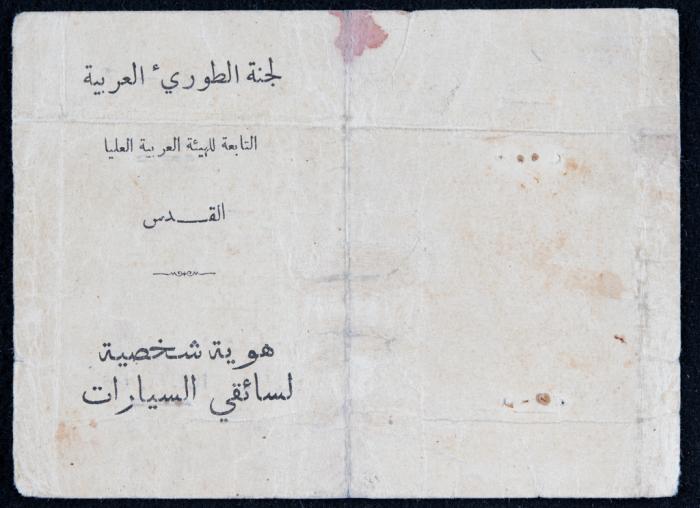 لجنة الطوريء العربية
التابعة للهيئة العربية العليا
القدس
هوية شخصية
لسائقي السيارات